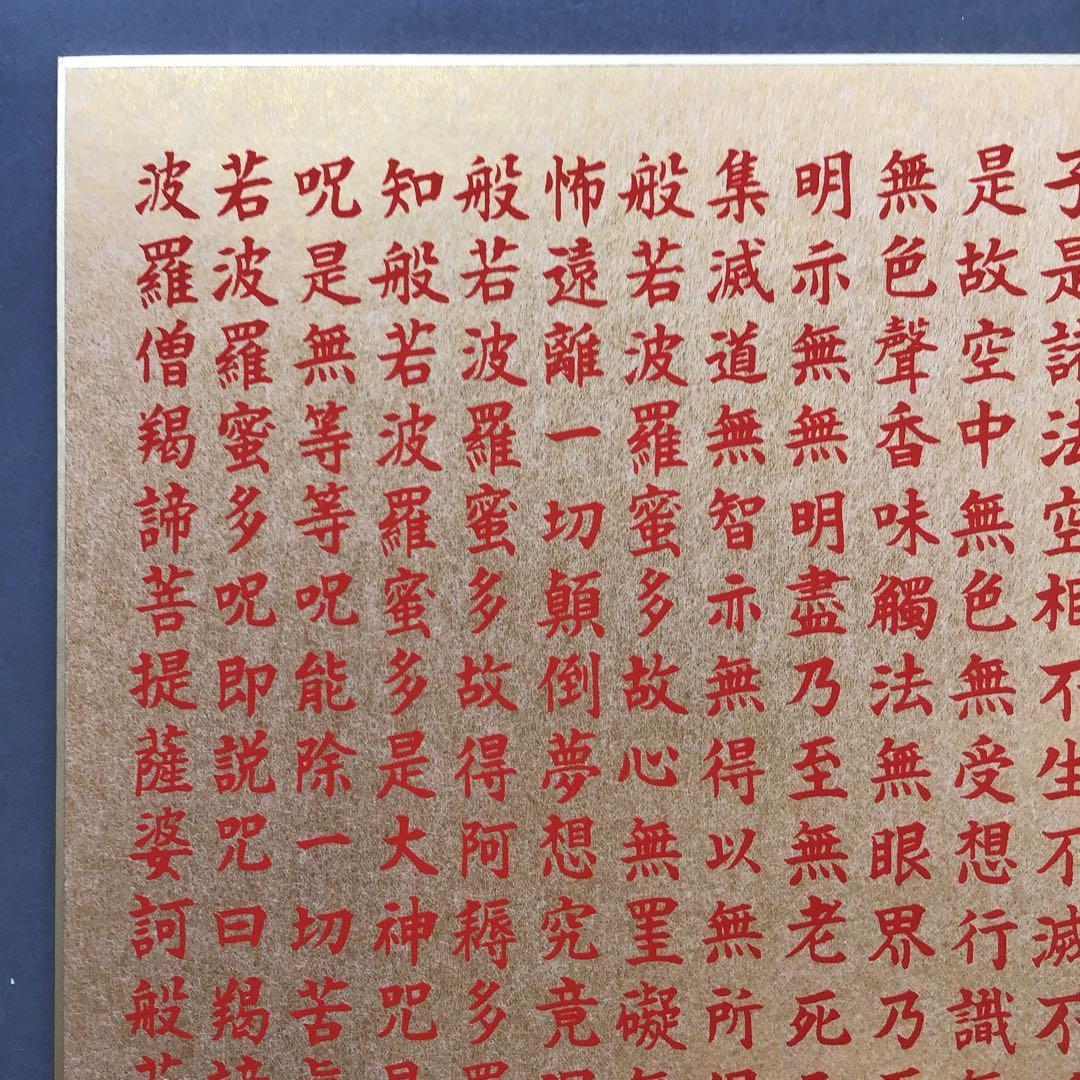 子是諸法空相不生不滅不
是故空中無色無受想行識
無色聲香味觸法無眼界乃
明亦無無明盡乃至無老死
集滅道無智亦無得以無所
般若波羅蜜多故心無罣礙
怖遠離一切顛倒夢想究竟
般若波羅蜜多故得阿耨多
知般若波羅蜜多是大神咒
呪是無等等呪能除一切苦
若波羅蜜多呪即説呪曰羯
波羅僧羯諦菩提薩婆訶般